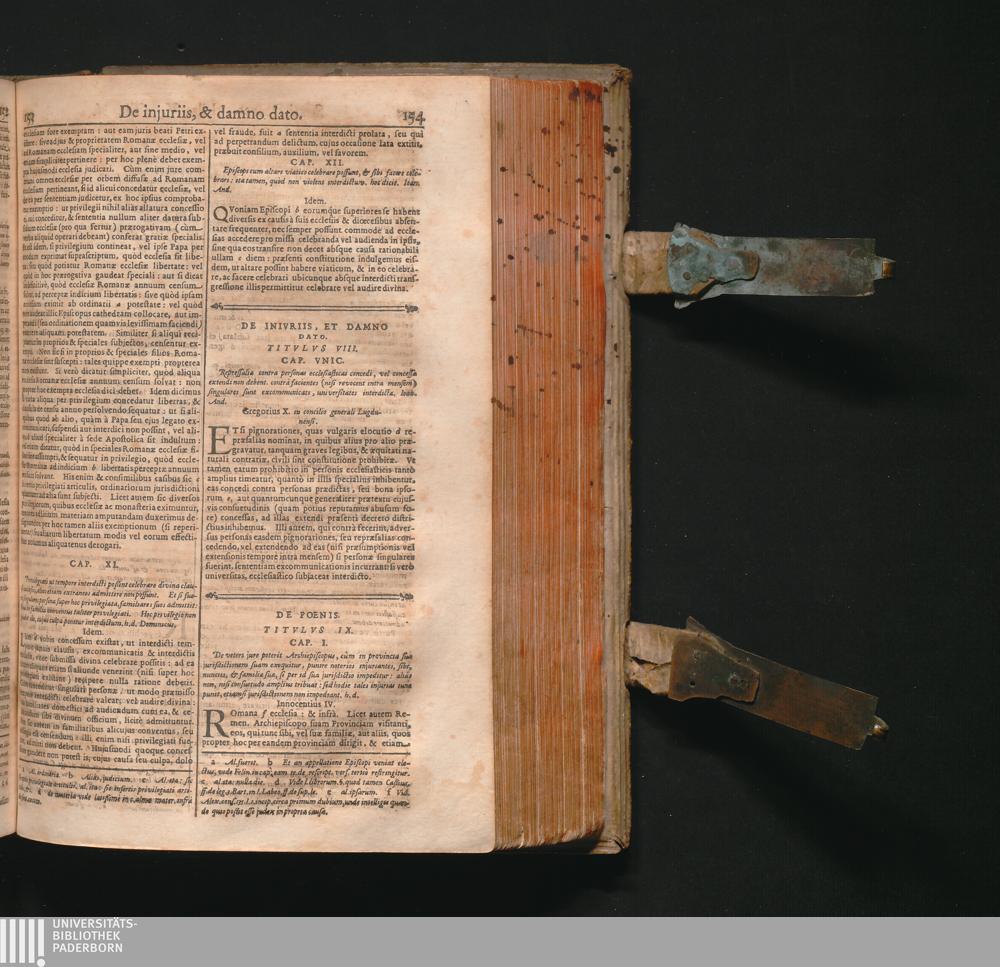 153 De injuriis, & damno dato. 154
ecclesiam fore exemptam: aut eam juris beati Petri ex-
istere: sive ad jus & proprietatem Romanæ ecclesiæ, vel
ad Romanam ecclesiam specialiter, aut sine medio, vel
etiam simpliciter pertinere: per hoc plenè debet exem-
pta hujusmodi ecclesia judicari. Cùm enim jure com-
muni omnes ecclesiæ per orbem diffusæ ad Romanam
ecclesiam pertineant, si id alicui concedatur ecclesiæ, vel
de ea per sententiam judicetur, ex hoc ipsius comproba-
tur exemptio: ut privilegii nihil alias allatura concessio
ei, cui conceditur, & sententia nullum aliter datura sub-
sidium ecclesiæ (pro qua fertur) prærogativam (cùm
verba aliquid operari debeant) conferat gratiæ specialis.
Et est idem, si privilegium contineat, vel ipse Papa per
modum exprimat suprascriptum, quòd ecclesia sit libe-
ra: seu quòd potiatur Romanæ ecclesiæ libertate: vel
quòd in hoc prærogativa gaudeat speciali: aut si dicat
quòd ecclesiæ Romanæ annuum censum
solvat, ad perceptæ indicium libertatis: sive quòd ipsam
eximit ab ordinarii a potestate: vel quòd
illic Episcopus cathedram collocare, aut im-
(seu ordinationem quamvis levissimam faciendi)
aliquam potestatem. Similiter si aliqui reci-
piantur in proprios & speciales subjectos, censentur ex-
empti. Nec sic si in proprios & speciales filios Roma-
næ ecclesiæ sint suscepti: tales quippe exempti propterea
non sunt. Si verò dicatur simpliciter, quod aliqua
ecclesia Romanæ ecclesiæ annuum censum solvat: non
propter hoc exempta ecclesia dici debet. Idem dicimus
si tuta aliqua per privilegium concedatur libertas, &
clausula de censu annuo persolvendo sequatur: ut si ali-
qui quòd ab alio, quàm à Papa seu ejus legato ex-
communicari, suspendi aut interdici non possint, vel ali-
quid aliud specialiter à sede Apostolica sit indultum:
vel etiam dicatur, quòd in speciales Romanæ ecclesiæ fi-
lios sint assumpti, & sequatur in privilegio, quòd eccle-
siæ Romanæ ad indicium b libertatis perceptæ annuum
censum solvant. His enim & consimilibus casibus sic c
exempti privilegiati articulis, ordinariorum jurisdictioni
quantum ad alia sunt subjecti. Licet autem sic diversos
privilegiorum, quibus ecclesiæ ac monasteria eximuntur,
materiam amputandam duxerimus de-
per hoc tamen aliis exemptionum (si reperi-
antur) libertatum modis vel eorum effecti-
bus nolumus aliquatenus derogari.
CAP. XI.
Privilegiati ut tempore interdicti possint celebrare divina clau-
sis januis, alios etiam extraneos admittere non possunt. Et si sua-
rum persona super hoc privilegiata, familiares suos admittit:
hoc familia conventus taliter privilegiati. Hoc privilegio non
gaudet is, cujus culpa ponitur interdictum. h. d. Dominicus.
Idem.
vobis concessum existat, ut interdicti tem-
pore januis clausis, excommunicatis & interdictis
exclusis, voce submissa divina celebrare possitis: ad ea
tamen quoque etiam si aliunde venerint (nisi super hoc
privilegium exhibent) recipere nulla ratione debetis.
singularis persona / ut modo præmisso
interdicti celebrare valeat, vel audire divina:
domesticos ad audiendum cum ea, & ce-
lebrandum sibi divinum officium, licitè admittuntur.
si autem in familiaribus alicujus conventus, seu
est censendum: illi enim nisi privilegiati fue-
rint, admitti non debent. Hujusmodi quoque conces-
gaudere non potest is, cujus causa seu culpa, dolo
a Al. ordinariâ. b Aliàs, judicium. c Al. ita: sic
privilegiata & velut, al. ita: sic insertis privilegiati arti-
d de materia vide latissimè in c. alma mater. infrà
vel fraude, fuit a sententia interdicti prolata, seu qui
ad perpetrandum delictum, cujus occasione lata extitit,
præbuit consilium, auxilium, vel favorem.
CAP. XII.
Episcopi cum altare viatico celebrare possunt, & sibi facere cele-
brare: ita tamen, quòd non violent interdictum. hoc dicit. Ioan.
And.
Idem.
QVoniam Episcopi b eorumque superiores se habent
diversis ex causis à suis ecclesiis & diœcesibus absen-
tare frequenter, nec semper possunt commodè ad eccle-
sias accedere pro missa celebranda vel audienda in ipsis,
sine qua eos transire non decet absque causa rationabili
ullam c diem: præsenti constitutione indulgemus eis-
dem, ut altare possint habere viaticum, & in eo celebra-
re, ac facere celebrari ubicunque absque interdicti trans-
gressione illis permittitur celebrare vel audire divina.
DE INIVRIIS, ET DAMNO
DATO.
TITVLVS VIII.
CAP. VNIC.
Repressalia contra personas ecclesiasticas concedi, vel concessa
extendi non debent. contra facientes (nisi revocent intra mensem)
singulares sunt excommunicati, universitates interdicta. Ioan.
And.
Gregorius X. in concilio generali Lugdu-
nensi.
ETsi pignorationes, quas vulgaris elocutio d re-
præsalias nominat, in quibus alius pro alio præ-
gravatur, tanquam graves legibus, & æquitati na-
turali contrariæ, civili sint constitutione prohibitæ. Vt
tamen earum prohibitio in personis ecclesiasticis tantò
amplius timeatur, quantò in illis specialius inhibentur,
eas concedi contra personas prædictas, seu bona ipso-
rum e, aut quantumcunque generaliter prætextu cujus-
vis consuetudinis (quam potius reputamus abusum fo-
re) concessas, ad illas extendi præsenti decreto distri-
ctius inhibemus. Illi autem, qui contrà fecerint, adver-
sus personas easdem pignorationes, seu repræsalias con-
cedendo, vel extendendo ad eas (nisi præsumptionis vel
extensionis tempore intra mensem) si personæ singulares
fuerint, sententiam excommunicationis incurrant: si verò
universitas, ecclesiastico subjaceat interdicto.
DE POENIS.
TITVLVS IX.
CAP. I.
De vetere jure poterit Archiepiscopus, cùm in provincia sua
jurisdictionem suam exequitur, punire notorios injuriantes, sibi,
nunciis, & familiæ suæ, si per id sua jurisdictio impeditur: aliàs
non, nisi consuetudo amplius tribuat: sed hodie tales injurias tunc
puniet, etiamsi jurisdictionem non impediant. h. d.
Innocentius IV.
ROmana f ecclesia: & infrà. Licet autem Re-
men. Archiepiscopo suam Provinciam visitanti,
eos, qui tunc sibi, vel suæ familiæ, aut aliis, quos
propter hoc per eandem provinciam dirigit, & etiam
a Al. fuerit. b Et an appellatione Episcopi veniat ele-
ctus, vide Felin. in cap. eam te. de rescript. vers. tertiò restringitur.
c al. ita: nulla die. d Vide l. librorum. §. quod tamen Cassius,
ff. de leg. 3. Bart. in l. Labeo, ff. de sup. le. e al. ipsarum. f Vid.
Alex. consil. 131. l. 1. incip. circa primum dubium, unde intelligis quan-
do quis possit esse judex in propria causa.
UNIVERSITÄTS-
BIBLIOTHEK
PADERBORN